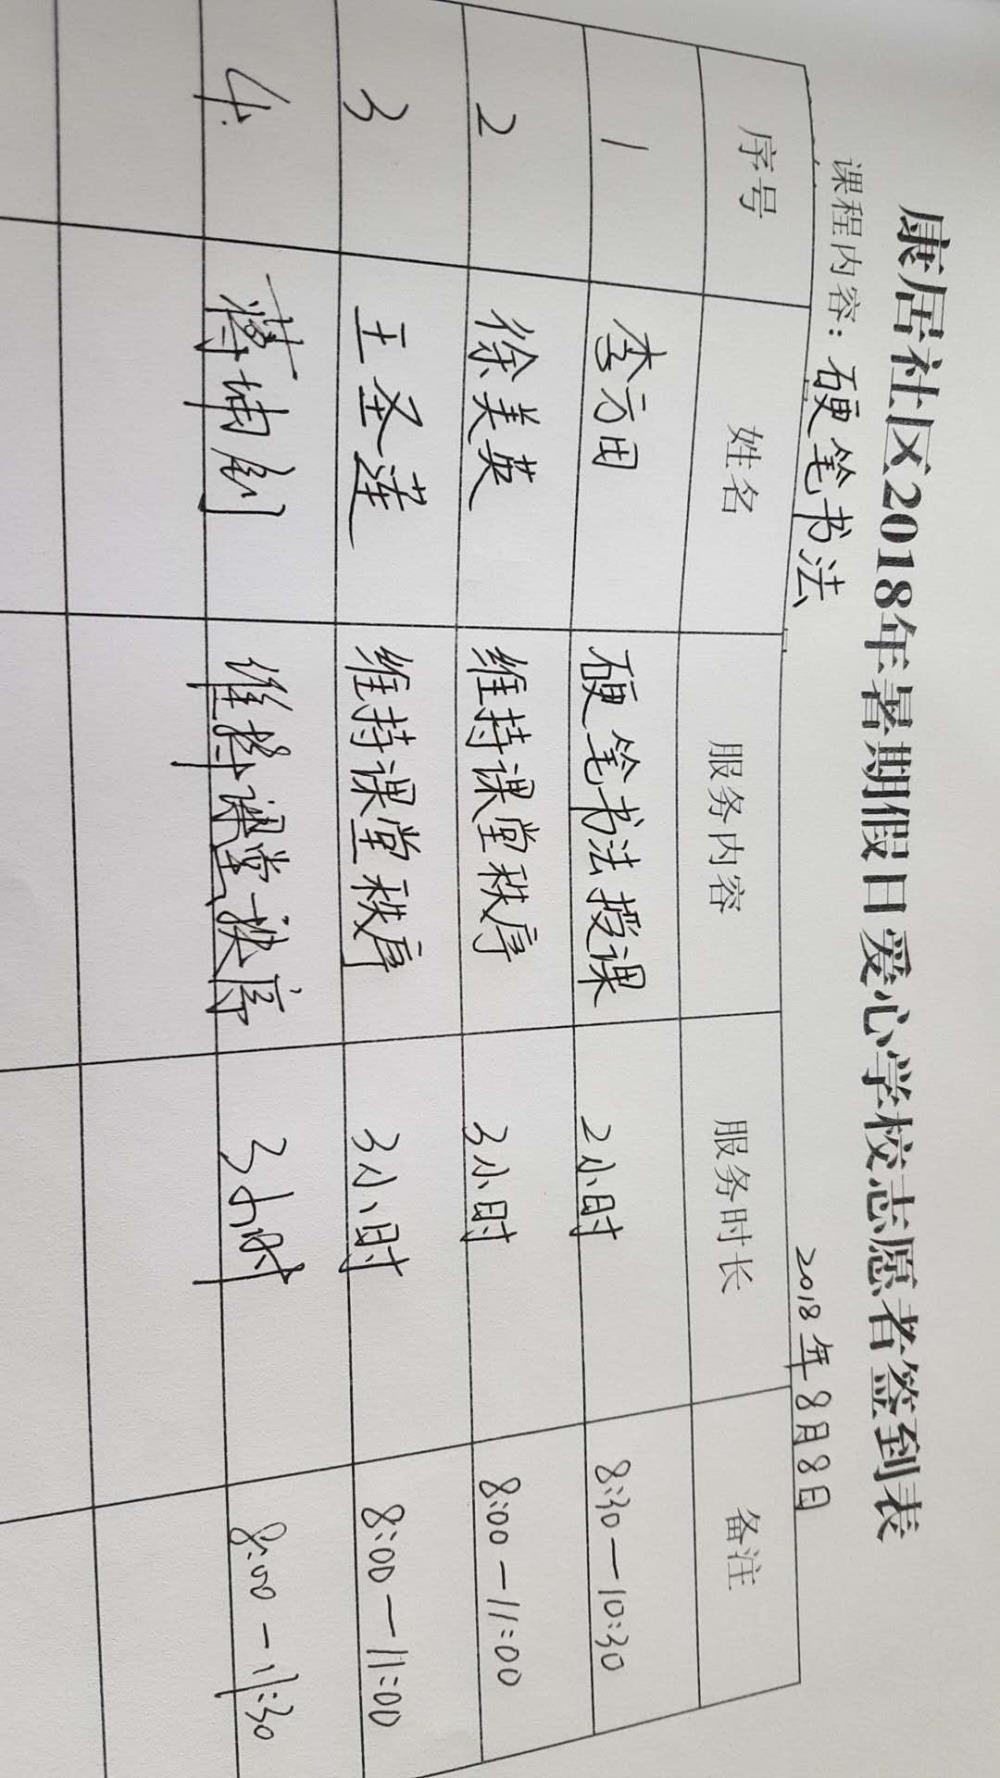 康居社区2018年暑期假日爱心学校志愿者签到表
课程内容：硬笔书法 2018年8月8日
序号 姓名 服务内容 服务时长 备注
1 李方田 硬笔书法授课 2小时 8:30—10:30
2 徐美英 维持课堂秩序 3小时 8:00—11:00
3 王圣莲 维持课堂秩序 3小时 8:00—11:00
4. 维持课堂秩序 3小时 8:00—11:30